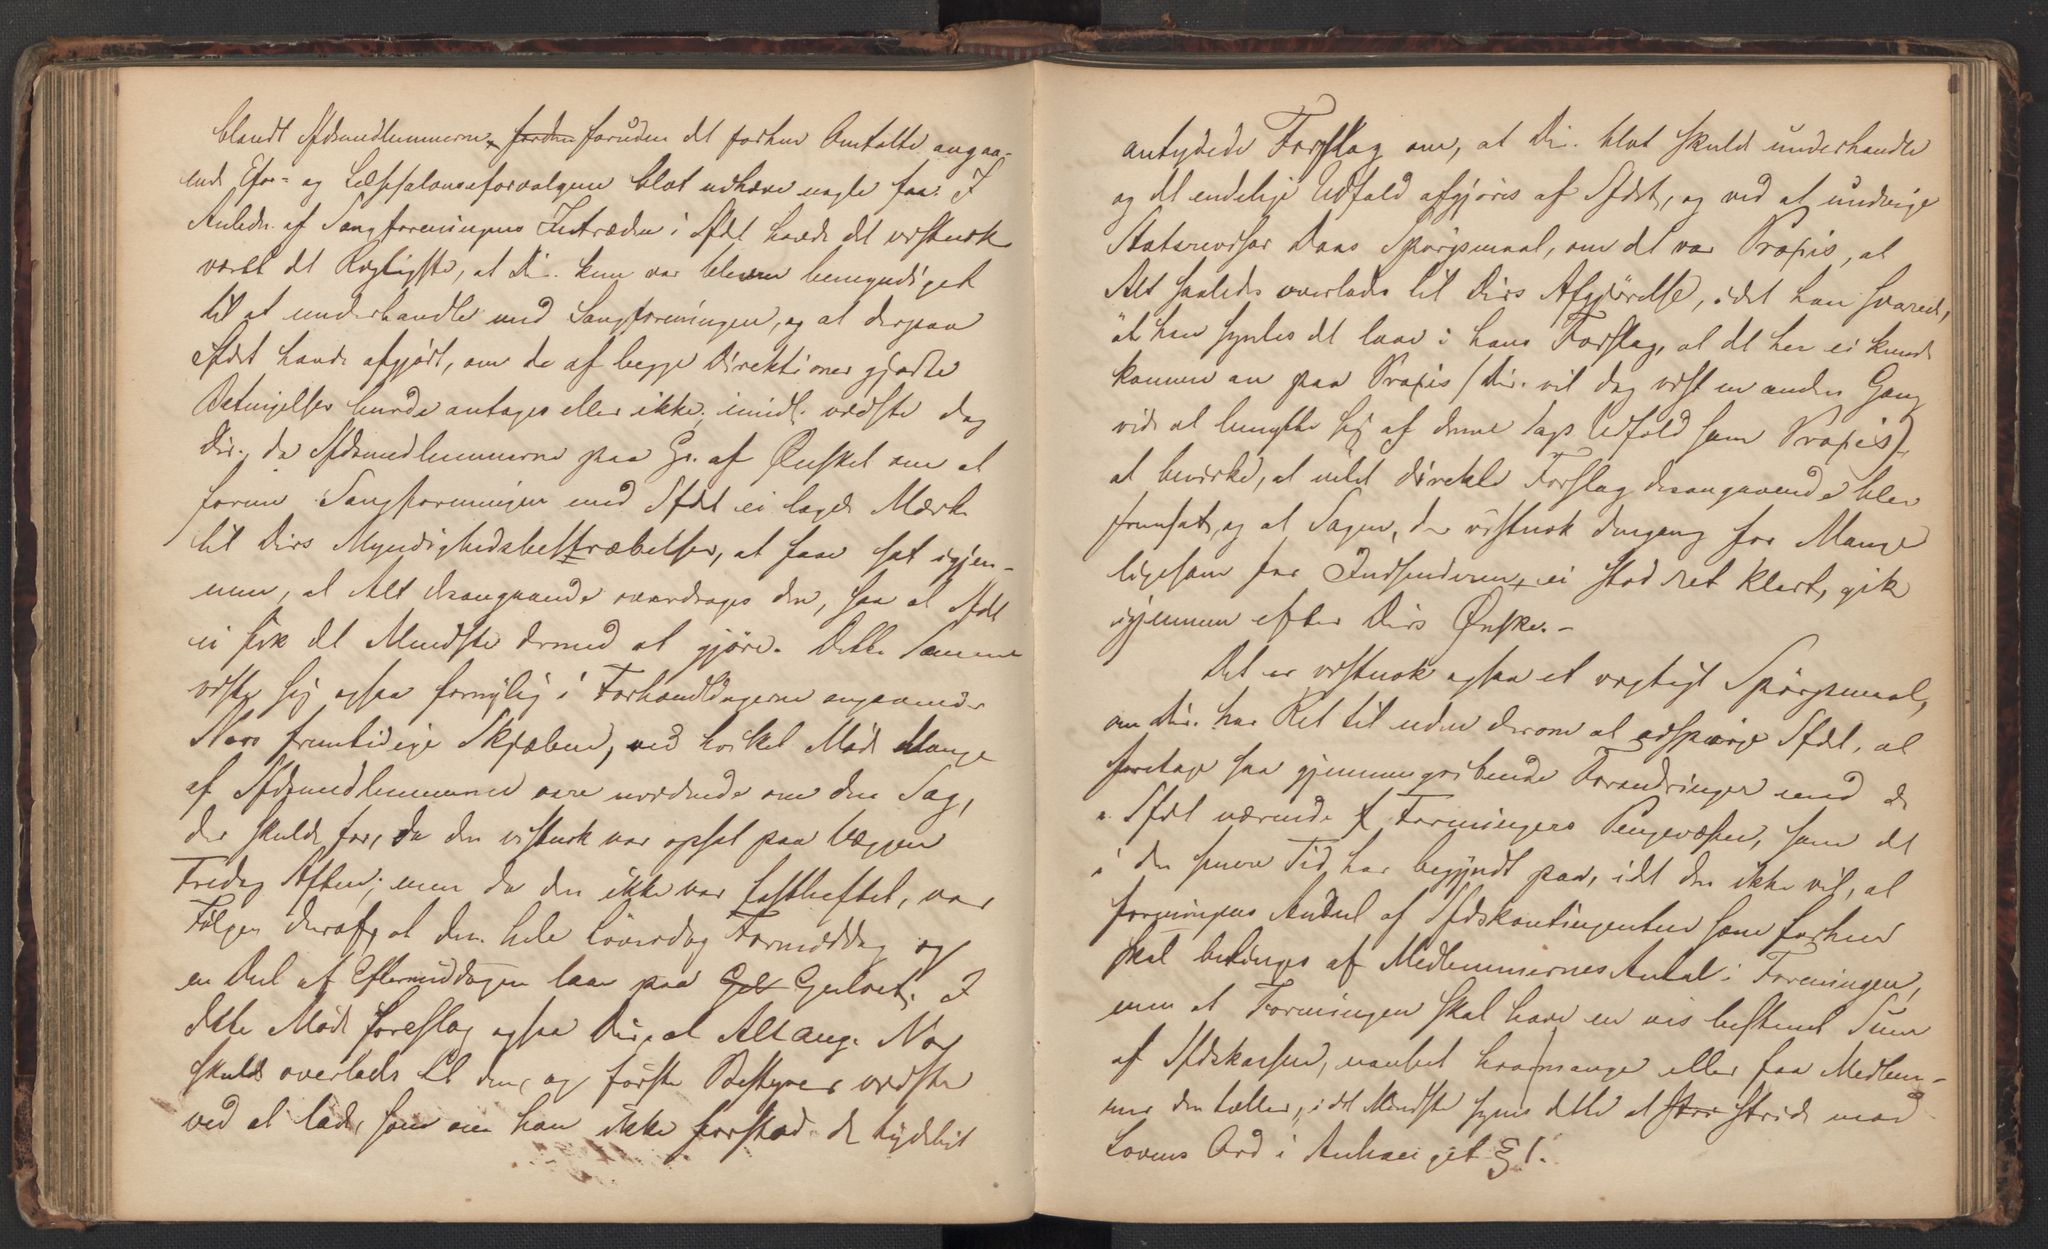 blandt Sfdsmedlemmerne, forden foruden det forhen Omtalte angaa-
ende Efor- og Læssalonseforvalgene blot udhæve nogle faa. I
Anledn. af Sangforeningens Indtræden i Sfdt havde det vistnok
været det Rigtigste, at Dir. kun var bleven bemyndiget
til at underhandle med Sangforeningen, og at derpaa
Sfdt havde afgjort, om de af begge Direktioner gjorte
Betingelser burde antages eller ikke; imidl. vidste dog
Dir., da Sfdsmedlemmerne paa Gr. af Ønsket om at
forene Sangforeningen med Sfdt ei lagde Mærke
til Dirs Myndighedsbestræbelser, at faae sat igjen-
nem, at Alt desangaaende overdroges den, saa at Sfdt
ei fik det Mindste dermed at gjøre. Dette Samme
viste sig ogsaa fornylig i Forhandlingerne angaaende
Nors fremtidige Skjæbne, ved hvilket Møde Mange
af Sfdsmedlemmerne vare uvidende om den Sag,
der skulde for, da den vistnok var opsat paa Væggen
Fredag Aften; men da den ikke var fasthæftet, var
Følgen deraf, at den hele Löverdag Formiddag og
en Deel af Eftermiddagen laae paa Gul Gulvet. I
dette Møde foreslog ogsaa Dir. at Alt ang. Nor
skulde overlades til den, og første Bestyrer vidste
ved at lade, som om han ikke forstod de tydeligt
antydede Forslag om, at Dir. blot skulde underhandle
og det endelige Udfald afgjøres af Sfdt, og ved at undvige
Statsrevisor Daas Spørgsmaal, om det var Praxis, at
Alt saaledes overlades til Dirs Afgjørelse, idet han svarede,
at han syntes det laae i hans Forslag, at det her ei kunde
komme an paa Praxis (Dir. vil dog vist en anden Gang
vide at benytte sig af denne Sags Udfald som Praxis)
at bevirke, at intet direkte Forslag desangaaende blev
fremsat, og at Sagen, der vistnok dengang for Mange
ligesom for Indsenderen, ei stod ret klart, gik
igjennem efter Dirs Ønske. –
Det er vistnok ogsaa et vigtigt Spørgsmaal,
om Dir. har Ret til uden derom at adspørge Sfdt, at
foretage saa gjennemgribende Forandringer med de
i Sfdt værende Foreningers Pengevæsen, som det
i den senere Tid har begyndt paa, idet den ikke vil, at
foreningens Andeel af Sfdskontingenten som forhen
skal betinges af Medlemmernes Antal i Foreningen,
men at Foreningen skal have en vis bestemt Sum
af Sfdskassen, uanset hvormange eller faa Medlem-
mer den tæller, i det Mindste synes dette at stri stride mod
Lovens Ord i Anhænget § 1.